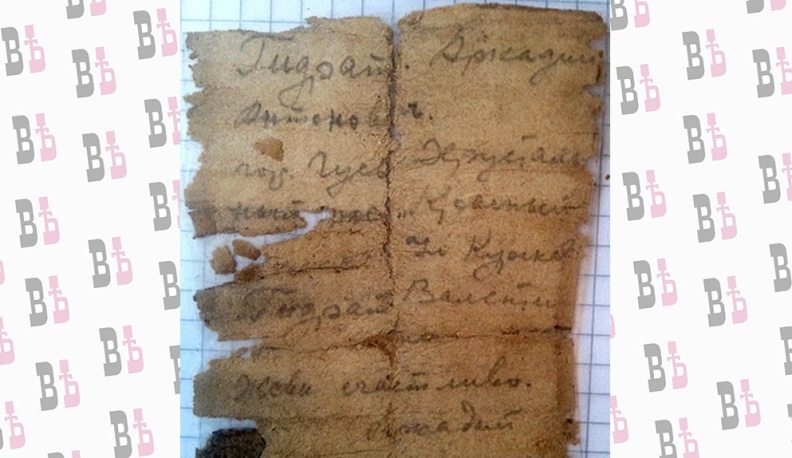 Гидрат. Аркадий
Антонович.
гор. Гусь Хрусталь
ный пос. „Красный
Ул Курков
Гидрат Валенти
на
живи счастливо.
Аркадий